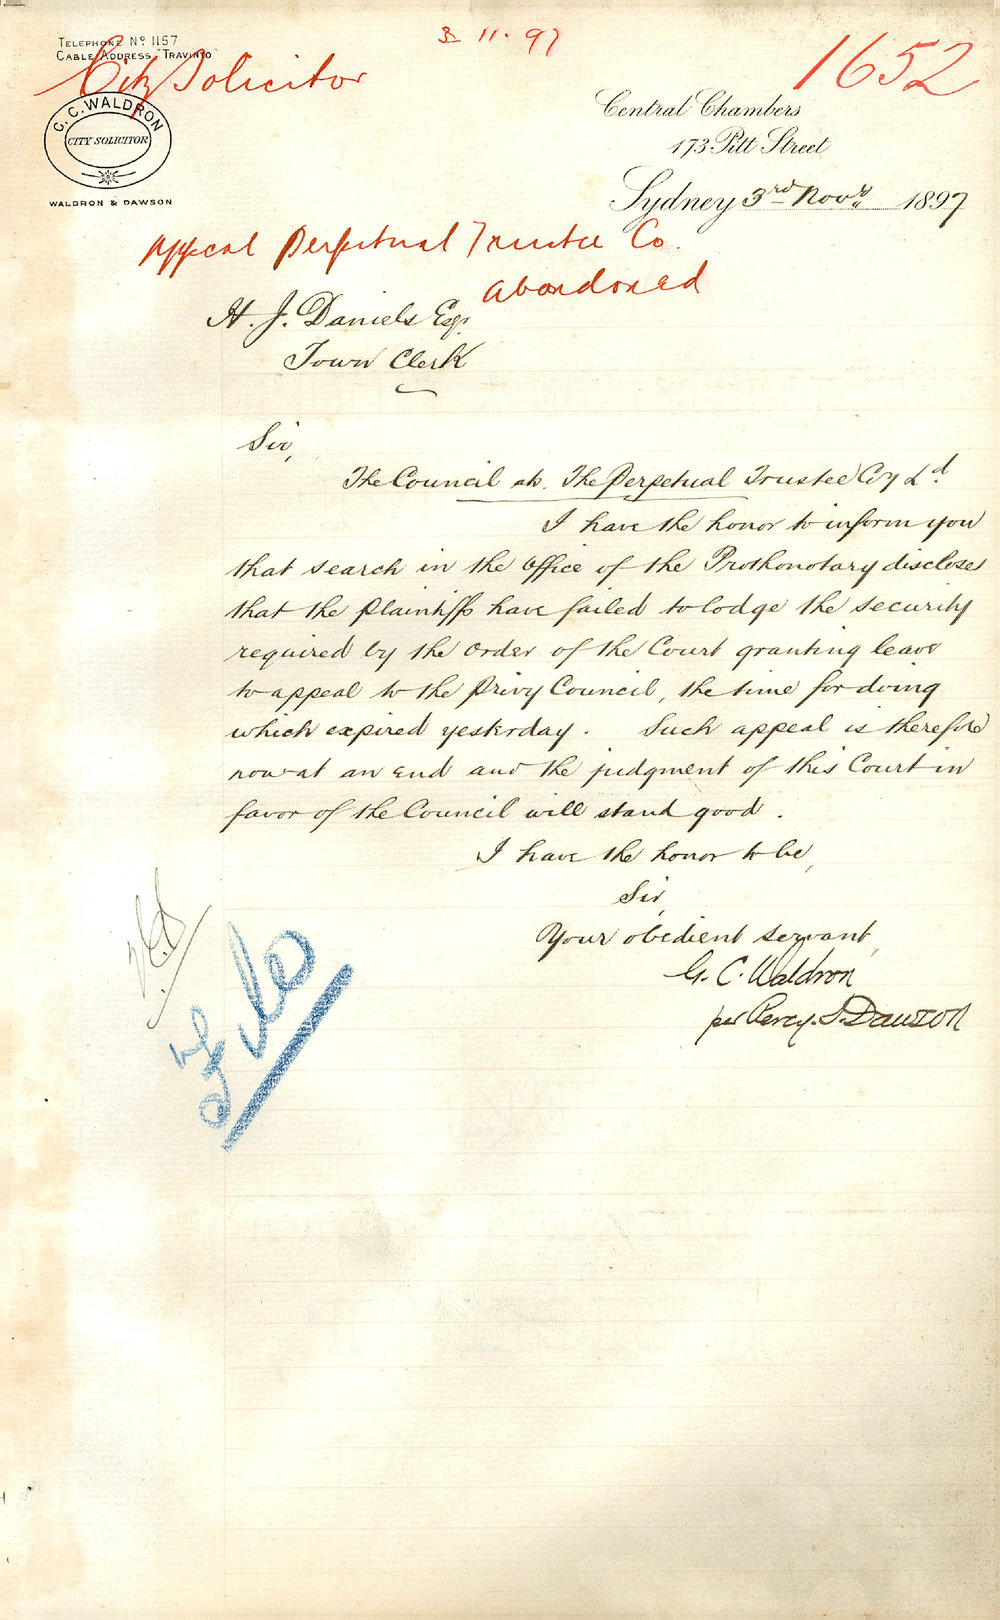 3 11. 97
1652
TELEPHONE Nº 1157
CABLE ADDRESS "TRAVINTO"
City Solicitor
G. C. WALDRON
CITY SOLICITOR
WALDRON & DAWSON
Central Chambers
173 Pitt Street
Sydney 3rd Novr 1897
Appeal Perpetual Trustee Co.
Abandoned
H. J. Daniels Esq.
Town Clerk
Sir,
The Council ats. The Perpetual Trustee Coy Ld.
I have the honor to inform you
that search in the Office of the Prothonotary discloses
that the Plaintiffs have failed to lodge the security
required by the Order of the Court granting leave
to appeal to the Privy Council, the time for doing
which expired yesterday. Such appeal is therefore
now at an end and the judgment of this Court in
favor of the Council will stand good.
I have the honor to be,
Sir,
Your obedient servant,
G. C. Waldron
per Percy. J. Dawson
File